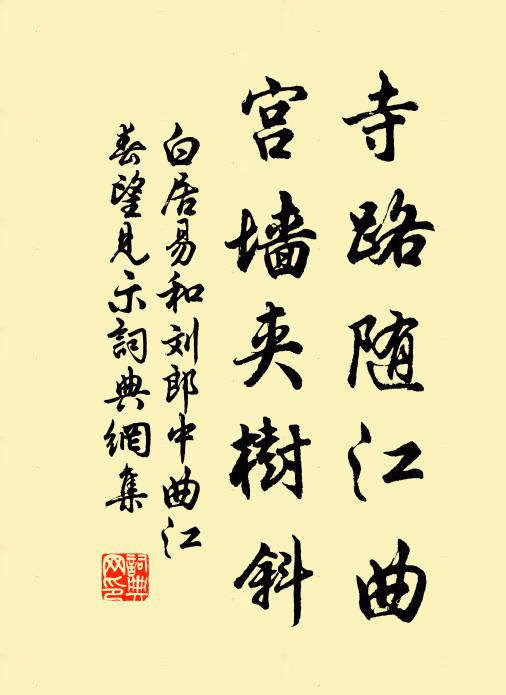 寺路随江曲
宫墙夹樹斜
白居易和刘郎中曲江
春望見示詞典網集
詞典
网印